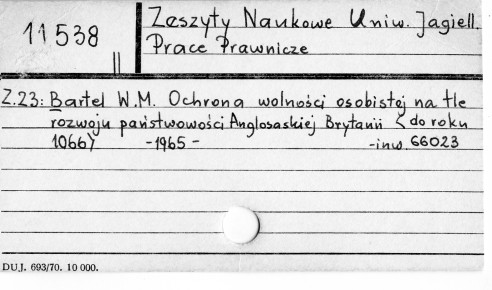 11538
Zeszyty Naukowe Uniw. Jagiell.
Prace Prawnicze
Z.23: Bartel W.M. Ochrona wolności osobistej na tle
rozwoju państwowości Anglosaskiej Brytanii < do roku
1066> -1965- -inw. 66023
DUJ. 693/70. 10 000.